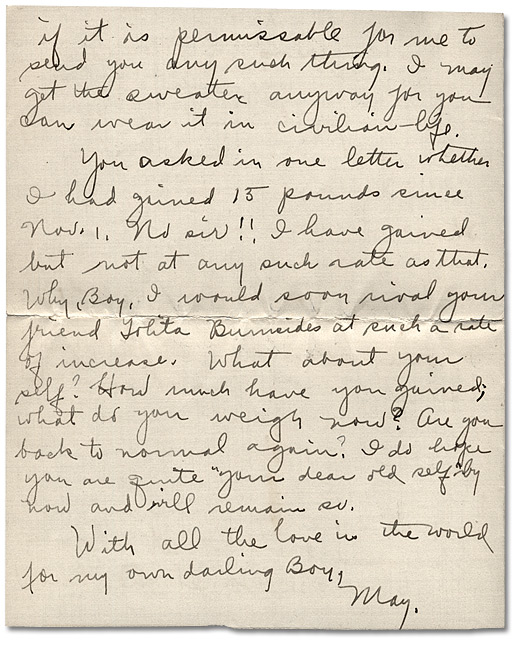 if it is permissable for me to
send you any such thing. I may
get the sweater anyway for you
can wear it in civilian life.
You asked in one letter whether
I had gained 15 pounds since
Nov. 1. No sir!! I have gained
but not at any such rate as that.
Why, Boy, I would soon rival your
friend Lolita Burnsides at such a rate
of increase. What about your
self? How much have you gained;
what do you weigh now? Are you
back to normal again? I do hope
you are quite "your dear old self" by
now and will remain so.
With all the love in the world
for my own darling Boy,
May.